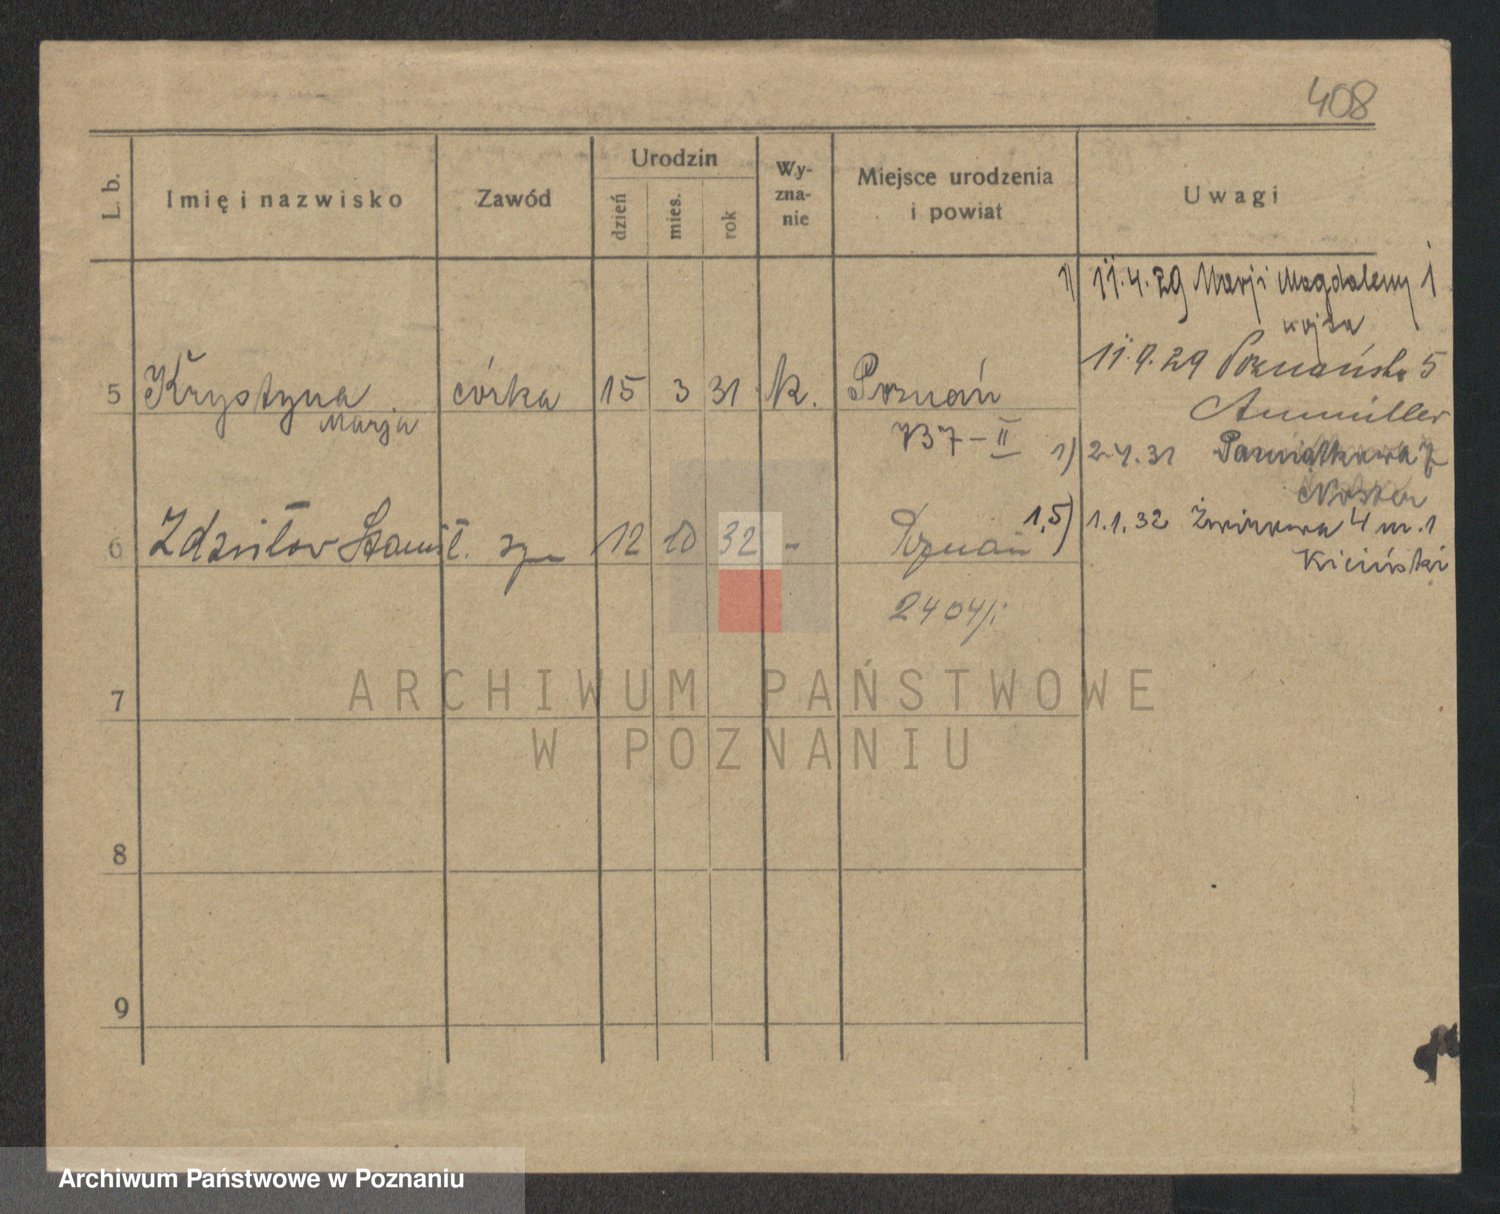 408
L. b.
Imię i nazwisko
Zawód
Urodzin
dzień
mies.
rok
Wy-
zna-
nie
Miejsce urodzenia
i powiat
Uwagi
1) 11.4.29 Marji Magdaleny 1
11.9.29 Poznańska 5
5 Krystyna córka 15 3 31 k. Poznań
Marja
Aumüller
VB7-II
1) 2.4.31 Pamiątkowa 7
6 Zdzisław Stanisł. syn 12 10 32 - Poznań
1,5) 1.1.32 Żwirowa 4 m. 1
Kiciński
2404/i
7
8
9
ARCHIWUM PAŃSTWOWE
W POZNANIU
Archiwum Państwowe w Poznaniu